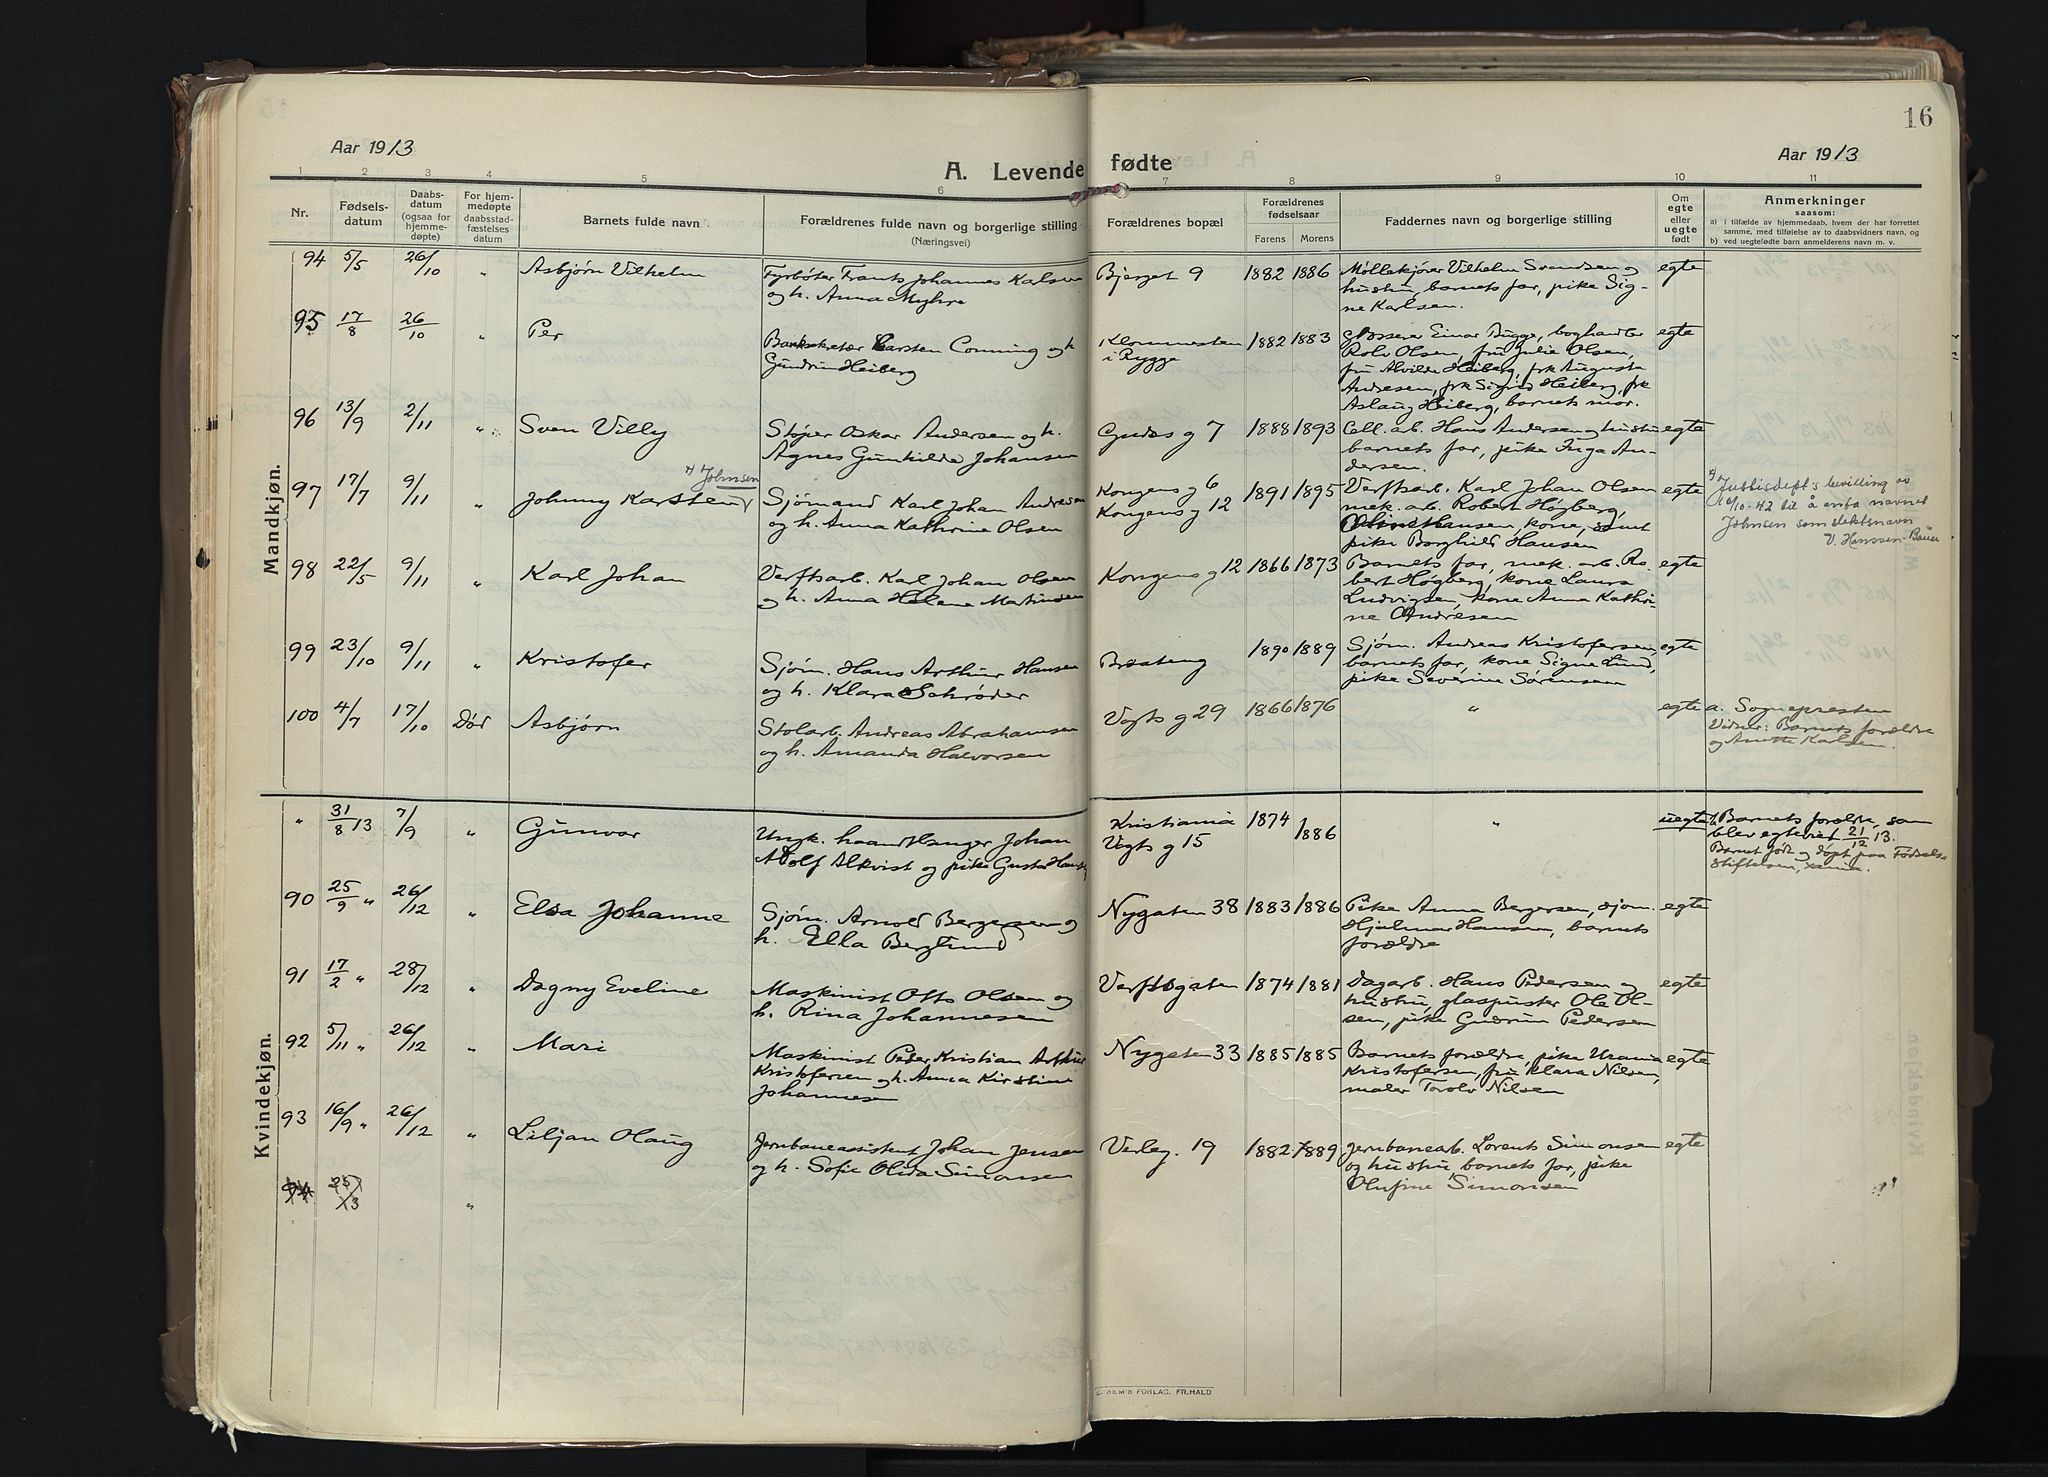 16
Aar 1913
A. Levende fødte
Aar 1913
1 2 3 4 5 6 7 8 9 10 11
Nr.
Fødsels-
datum
Daabs-
datum
(ogsaa for
hjemme-
døpte)
For hjem-
medøpte
daabsstad-
fæstelses
datum
Barnets fulde navn
Forældrenes fulde navn og borgerlige stilling
(Næringsvei)
Forældrenes bopæl
Forældrenes
fødselsaar
Farens Morens
Faddernes navn og borgerlige stilling
Om
egte
eller
uegte
født
Anmerkninger
saasom:
a) i tilfælde av hjemmedaab, hvem der har forrettet
samme, med tilføielse av to daabsvidners navn, og
b) ved uegtefødte barn anmelderens navn m. v.
Mandkjøn.
94 5/5 26/10 " Asbjørn Vilhelm
Fyrbøter Frants Johannes Karlsen
og h. Anna Myhre
Bjerget 9 1882 1886
Møllekjører Vilhelm Svendsen og
hustru, barnets far, pike Sig-
ne Karlsen.
egte
95 17/8 26/10 " Per
Banksekretær Carsten Conning og h
Gudrun Heiberg
Klommesten
i Rygge
1882 1883
Grosserer Einar Bugge, boghandler
Rolv Olsen, fru Julie Olsen,
fru Alvilde Heiberg, frk Augusta
Andresen, frk Sigrid Heiberg, frk
Aslaug Heiberg, barnets mor.
egte
96 13/9 2/11 " Sven Villy
Støper Oskar Andersen og h.
Agnes Gunhilde Johansen
Gudes g 7 1888 1893
Cell. arb. Hans Andersen og hustru
barnets far, pike Inga An-
dersen.
egte
97 17/7 9/11 " Johnny Karsten
x) Johnsen
Sjømand Karl Johan Andresen
og h. Anna Kathrine Olsen
Kongens g 6
Kongens g 12
1891 1895
Verftsarb. Karl Johan Olsen
mek. arb. Robert Høgberg,
Hansen, kone, samt
pike Borghild Hansen
egte
x) Justisdept's bevilling av
16/10-42 til å anta navnet
Johnsen som slektsnavn
V. Hanssen-Bauer
98 22/5 9/11 " Karl Johan
Verftsarb. Karl Johan Olsen
og h. Anna Helene Martinsen
Kongens g 12 1866 1873
Barnets far, mek. arb. Ro-
bert Høgberg, kone Laura
Ludvigsen, kone Anna Kathri-
ne Andresen
egte
99 23/10 9/11 " Kristofer
Sjøm. Hans Arthur Hansen
og h. Klara Schrøder
Braateng 1890 1889
Sjøm. Andreas Kristofersen,
barnets far, kone Signe Lund,
pike Severine Sørensen
egte
100 4/7 17/10 Død Asbjørn
Stolarb. Andreas Abrahamsen
og h. Amanda Halvorsen
Vogts g 29 1866 1876 " egte
a. Sognepresten
Vidner: Barnets forældre
og Anette Karlsen.
Kvindekjøn.
" 31/8 13 7/9 " Gunvor
Ungk. haandlanger Johan
Adolf Alkvist og pike Gusta Hansen
Kristiania
Vogts g 15
1874 1886 " uegte
b. Barnets forældre, som
blev egteviet 21/12 13.
Barnet født og døpt paa Fødsels-
stiftelsen, Xania.
90 25/9 " 26/12 " Elsa Johanne
Sjøm. Arnold Bergersen og
h. Ella Berglund
Nygaten 38 1883 1886
Pike Anna Bergersen, sjøm.
Hjalmar Hansen, barnets
forældre
egte
91 17/2 " 28/12 " Dagny Eveline
Maskinist Otto Olsen og
h. Rina Johannesen
Verftsgaten 1874 1881
Dagarb. Hans Pedersen og
hustru, glaspuster Ole Ol-
sen, pike Gudrun Pedersen
egte
92 5/11 " 26/12 " Mari
Maskinist Peder Kristian Arthur
Kristofersen og h. Anna Kirstine
Johannesen
Nygaten 33 1885 1885
Barnets forældre, pike Urania
Kristofersen, fru Klara Nilsen,
maler Torolv Nilsen
egte
93 16/9 " 26/12 " Liljan Olaug
Jernbaneassistent Johan Jensen
og h. Sofie Olvida Simonsen
Verleg. 19 1882 1889
Jernbanearb. Lorents Simonsen
og hustru, barnets far, pike
Olufine Simonsen
egte
94 25/ 13 "
E. SEM'S FORLAG, FR.HALD